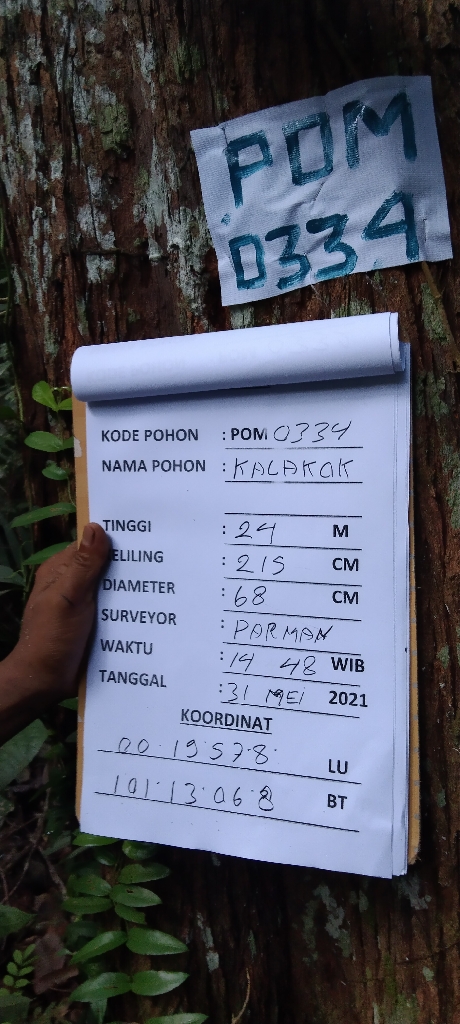 POM
0334
KODE POHON : POM 0334
NAMA POHON : KALAKOK
TINGGI : 24 M
ELILING : 215 CM
DIAMETER : 68 CM
SURVEYOR : PARMAN
WAKTU : 14 48 WIB
TANGGAL : 31 MEI 2021
KOORDINAT
00.19.57.8 LU
101.13.06.8 BT